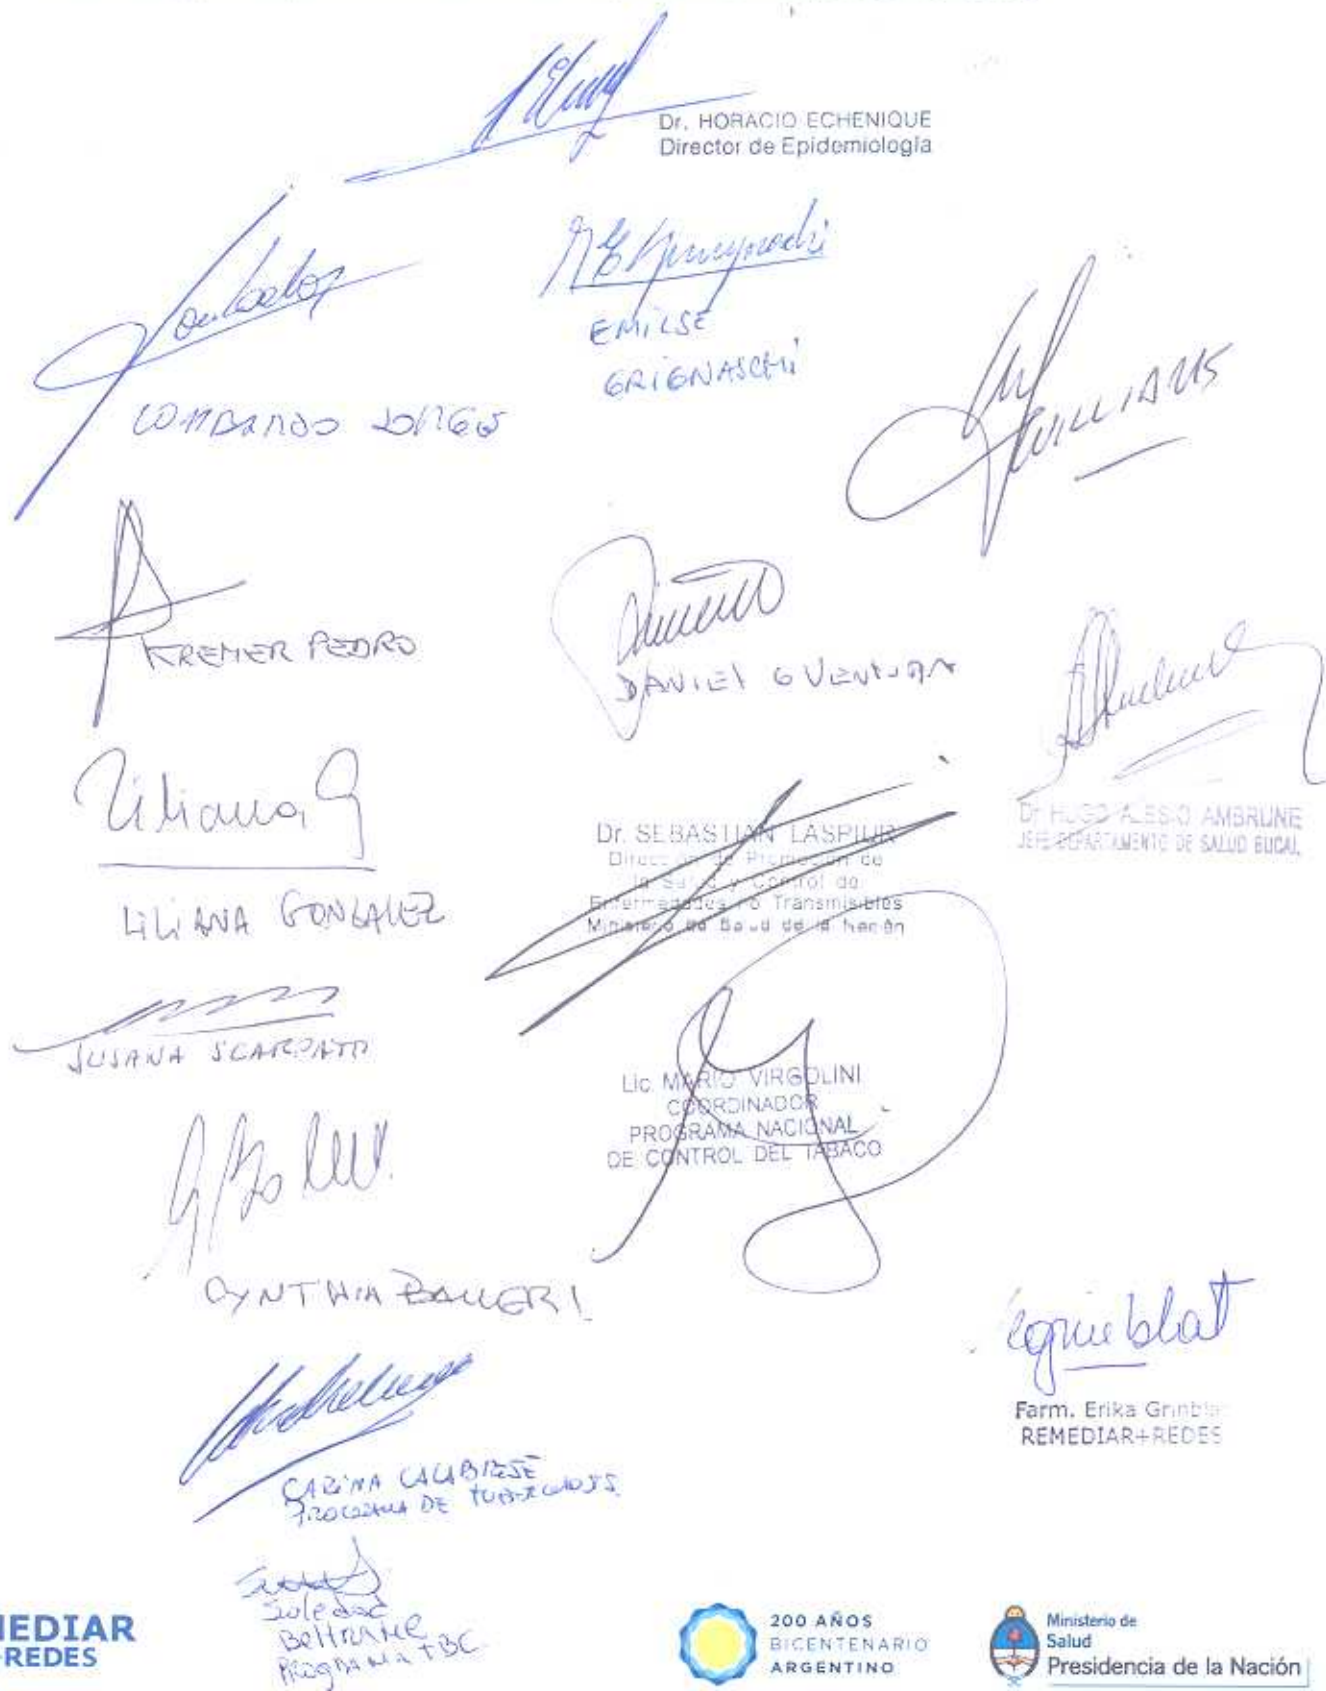 Dr. HORACIO ECHENIQUE
Director de Epidemiología
EMILSE
GRIGNASCHI
LOMBARDO JORGE
WILLIAMS
KREMER PEDRO
DANIEL
Liliana G
LILIANA GONZALEZ
Dr. SEBASTIAN LASPIUR
Dirección de Promoción de
la Salud y Control de
Enfermedades no Transmisibles
Ministerio de Salud de la Nación
Dr. HUGO ALESIO AMBRUNE
JEFE DEPARTAMENTO DE SALUD BUCAL
SUSANA SCARPATO
Lic. MARIO VIRGOLINI
COORDINADOR
PROGRAMA NACIONAL
DE CONTROL DEL TABACO
CYNTHIA BALLERI
Farm. Erika Grinbla
REMEDIAR+REDES
CARINA CALABRESE
PROGRAMA DE TUBERCULOSIS
Soledad
Beltrame
Programa TBC
MEDIAR
REDES
200 AÑOS
BICENTENARIO
ARGENTINO
Ministerio de
Salud
Presidencia de la Nación